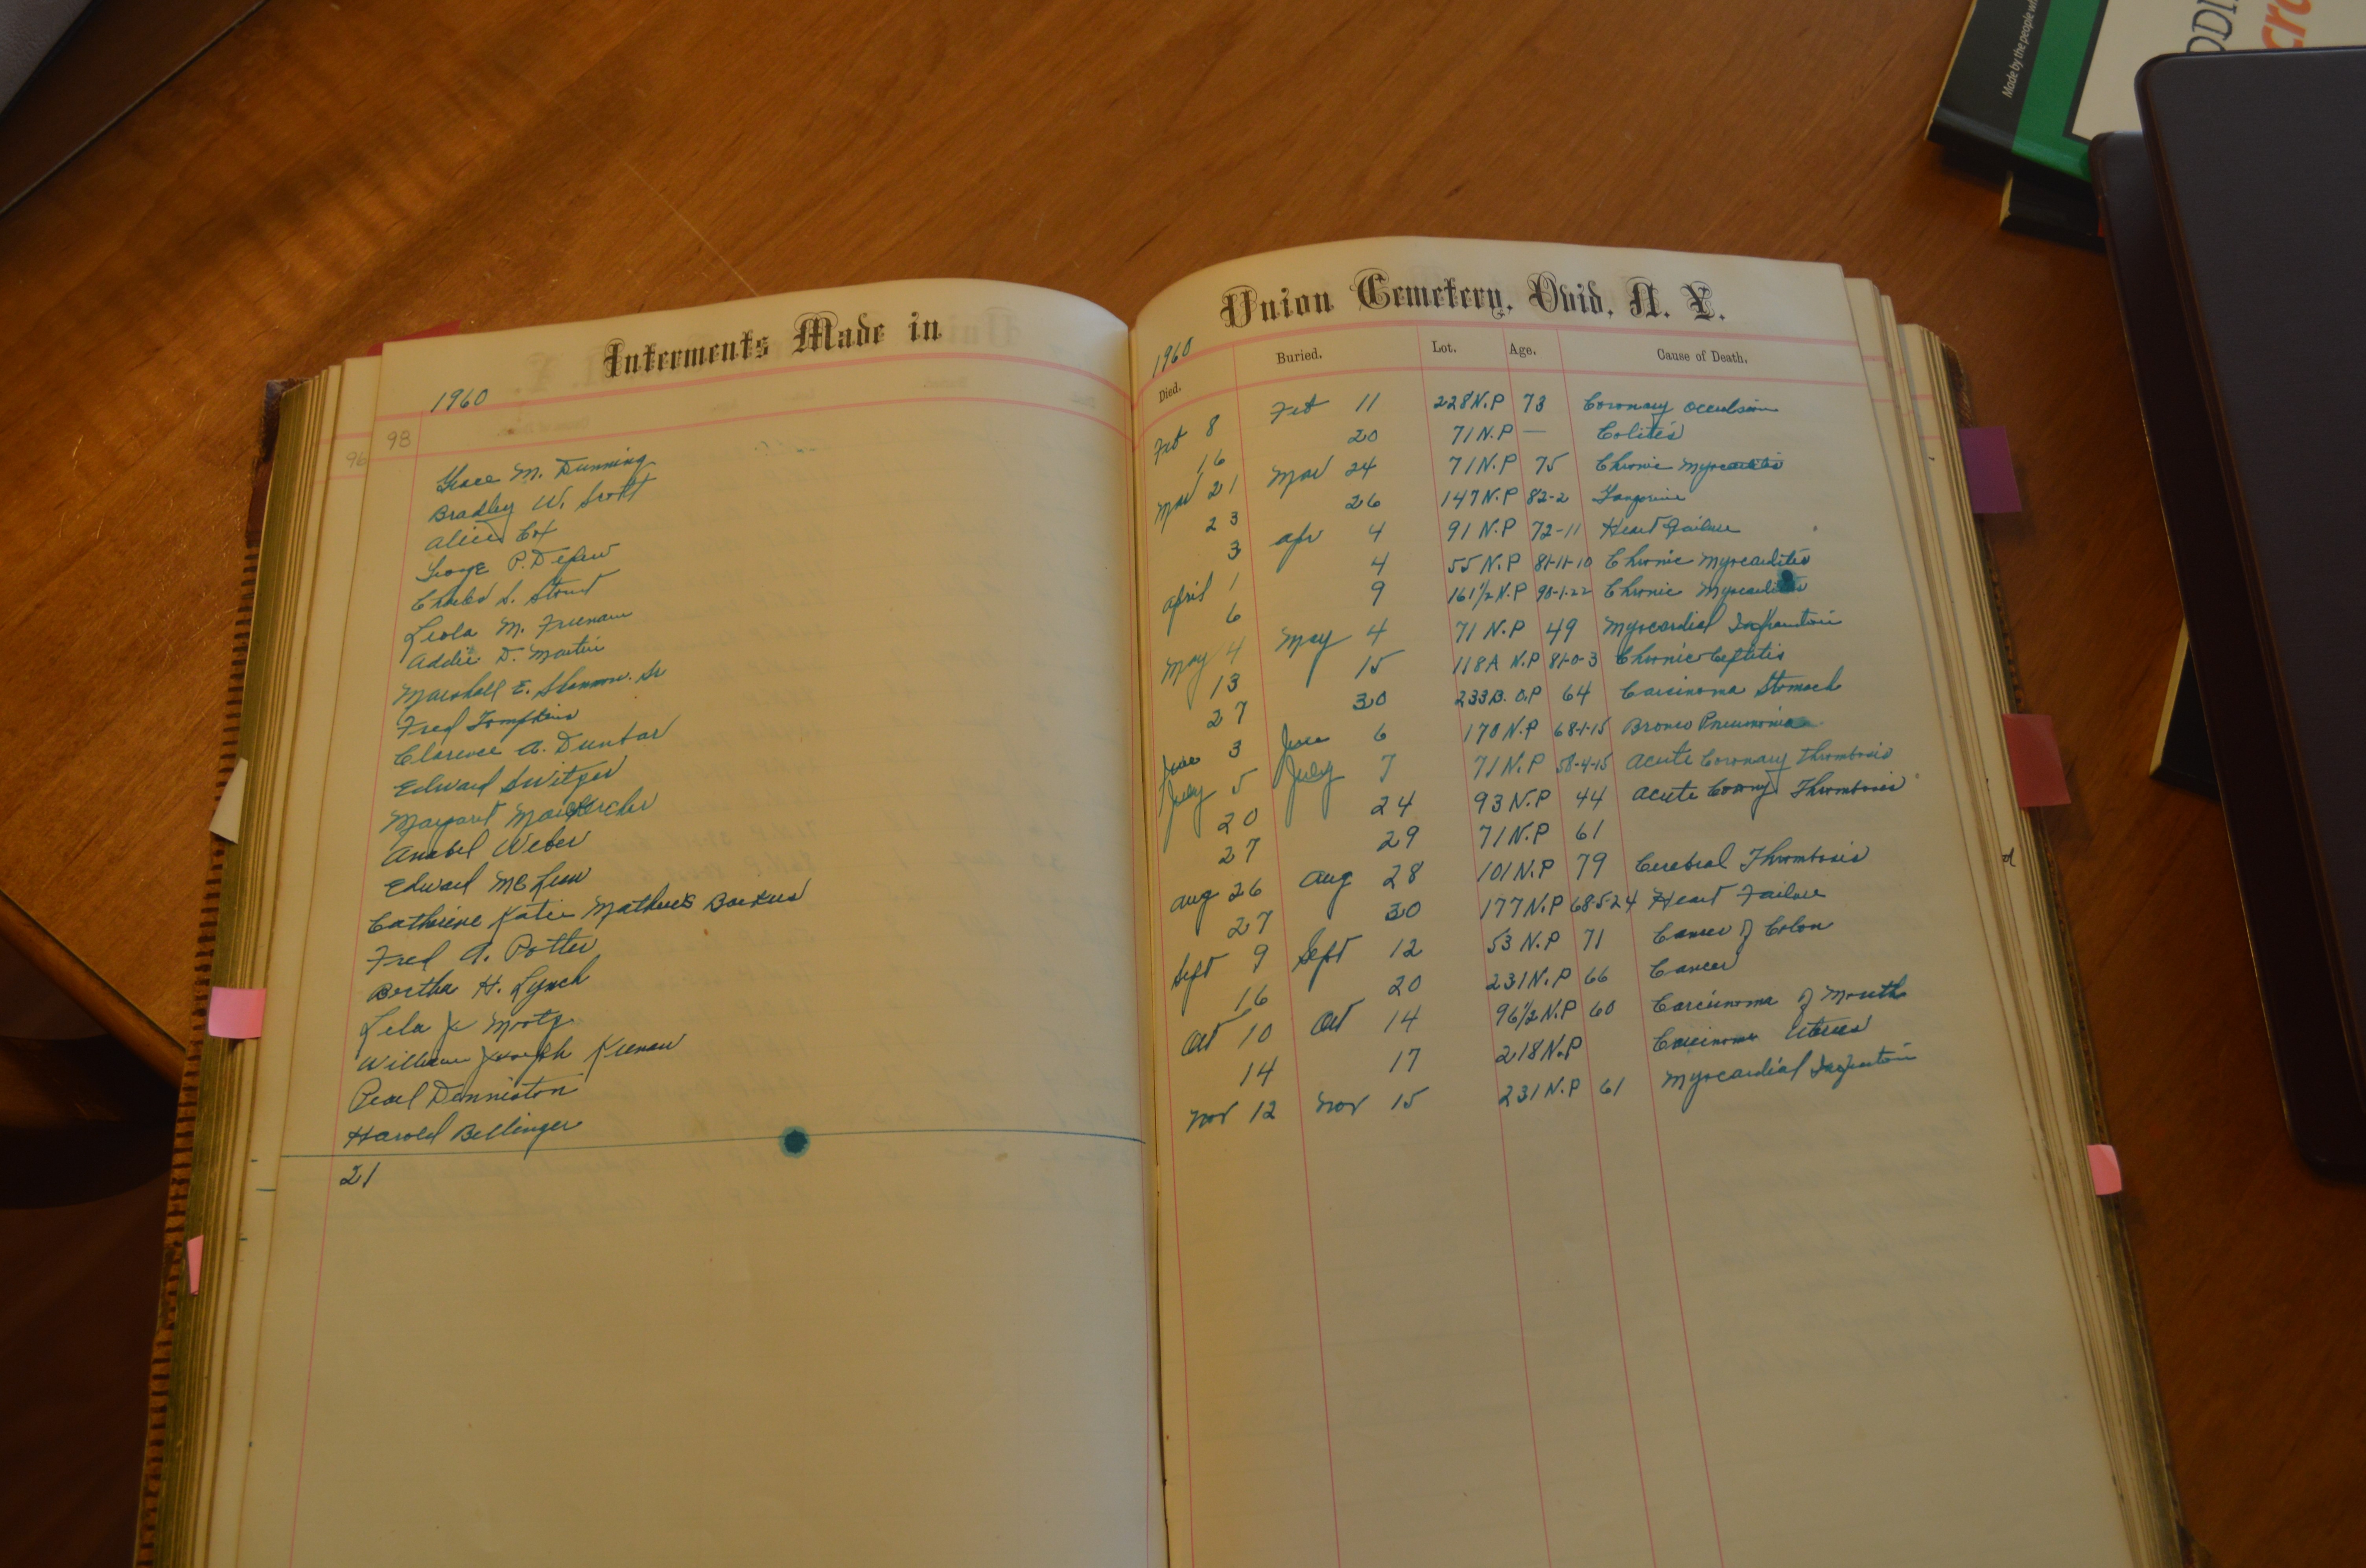 Interments Made in
1960
93
96
Grace M. Dunning
Bradley W. Scott
Alice Cox
George P. Depew
Charles S. Stout
Leola M. Freeman
Addie D. Martin
Marshall E. Shannon. Sr
Fred Tompkins
Clarence A. Dunbar
Edward Switzer
Margaret
Anabel Weber
Edward McLean
Catherine Katie Mathews Backus
Fred A. Potter
Bertha H. Lynch
Lela J. Moots
William Joseph Keenan
Pearl Denniston
Harold Bellinger
21
Union Cemetery, Ovid, N. Y.
1960
Died. Buried. Lot. Age. Cause of Death.
Feb 8 Feb 11 228 N.P 73 Coronary Occulsion
16 20 71 N.P — Colites
Mar 21 Mar 24 71 N.P 75 Chronic Myocarditis
23 26 147 N.P 82-2 Gangrine
3 Apr 4 91 N.P 72-11 Heart Failure
April 1 4 55 N.P 81-11-10 Chronic Myocarditis
6 9 161 1/2 N.P 90-1-22 Chronic Myocarditis
May 4 May 4 71 N.P 49 Myocardial
13 15 118A N.P 81-0-3 Chronic
27 30 233B. O.P 64 Carcinoma Stomach
June 3 June 6 170 N.P 68-1-15 Bronco Pneumonia
July 5 July 7 71 N.P 58-4-15 Acute Coronary Thrombosis
20 24 93 N.P 44 Acute Corony Thrombosis
27 29 71 N.P 61
Aug 26 Aug 28 101 N.P 79 Cerebral Thrombosis
27 30 177 N.P 68-5-24 Heart Failure
Sept 9 Sept 12 53 N.P 71 Cancer of Colon
16 20 231 N.P 66 Cancer
Oct 10 Oct 14 96 1/2 N.P 60 Carcinoma of Mouth
14 17 218 N.P Carcinoma Uterus
Nov 12 Nov 15 231 N.P 61 Myocardial
d
Made by the people